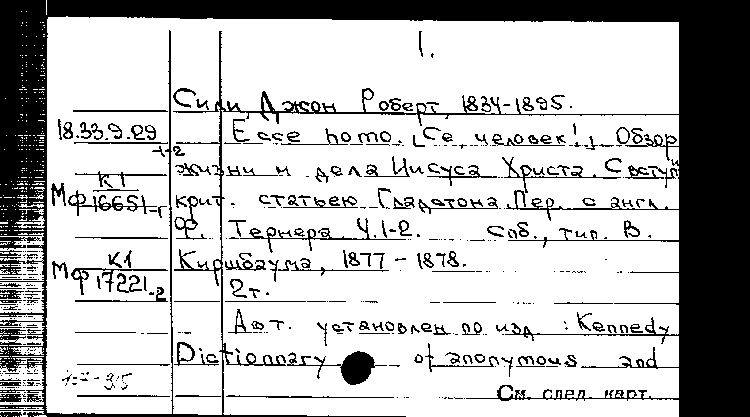 1.
Сили, Джон Роберт, 1834-1895.
18.33.9.29
1-2
Ecce homo. [Се, человек!], Обзор
жизни и дела Иисуса Христа. С вступ
К1
МФ 16651-1
крит. статьею Гладстона. Пер. с англ.
Ф. Тернера. Ч.1-2. Спб., тип. В.
К1
МФ 17221-2
Киршбаума, 1877-1878.
2т.
Авт. установлен по изд.: Kennedy
Dictionnary of anonymous and
См. след. карт.